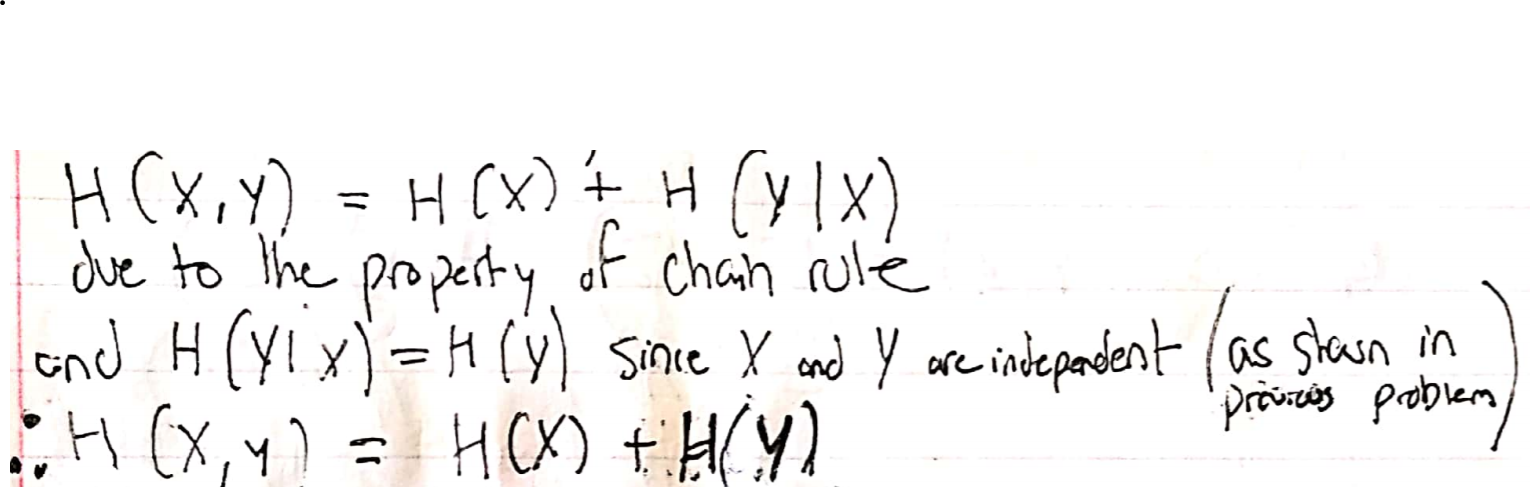 H(X,Y) = H(X) + H(Y|X)
due to the property of chain rule
and H(Y|X) = H(Y) since X and Y are independent (as shown in previous problem)
∴ H(X,Y) = H(X) + H(Y)